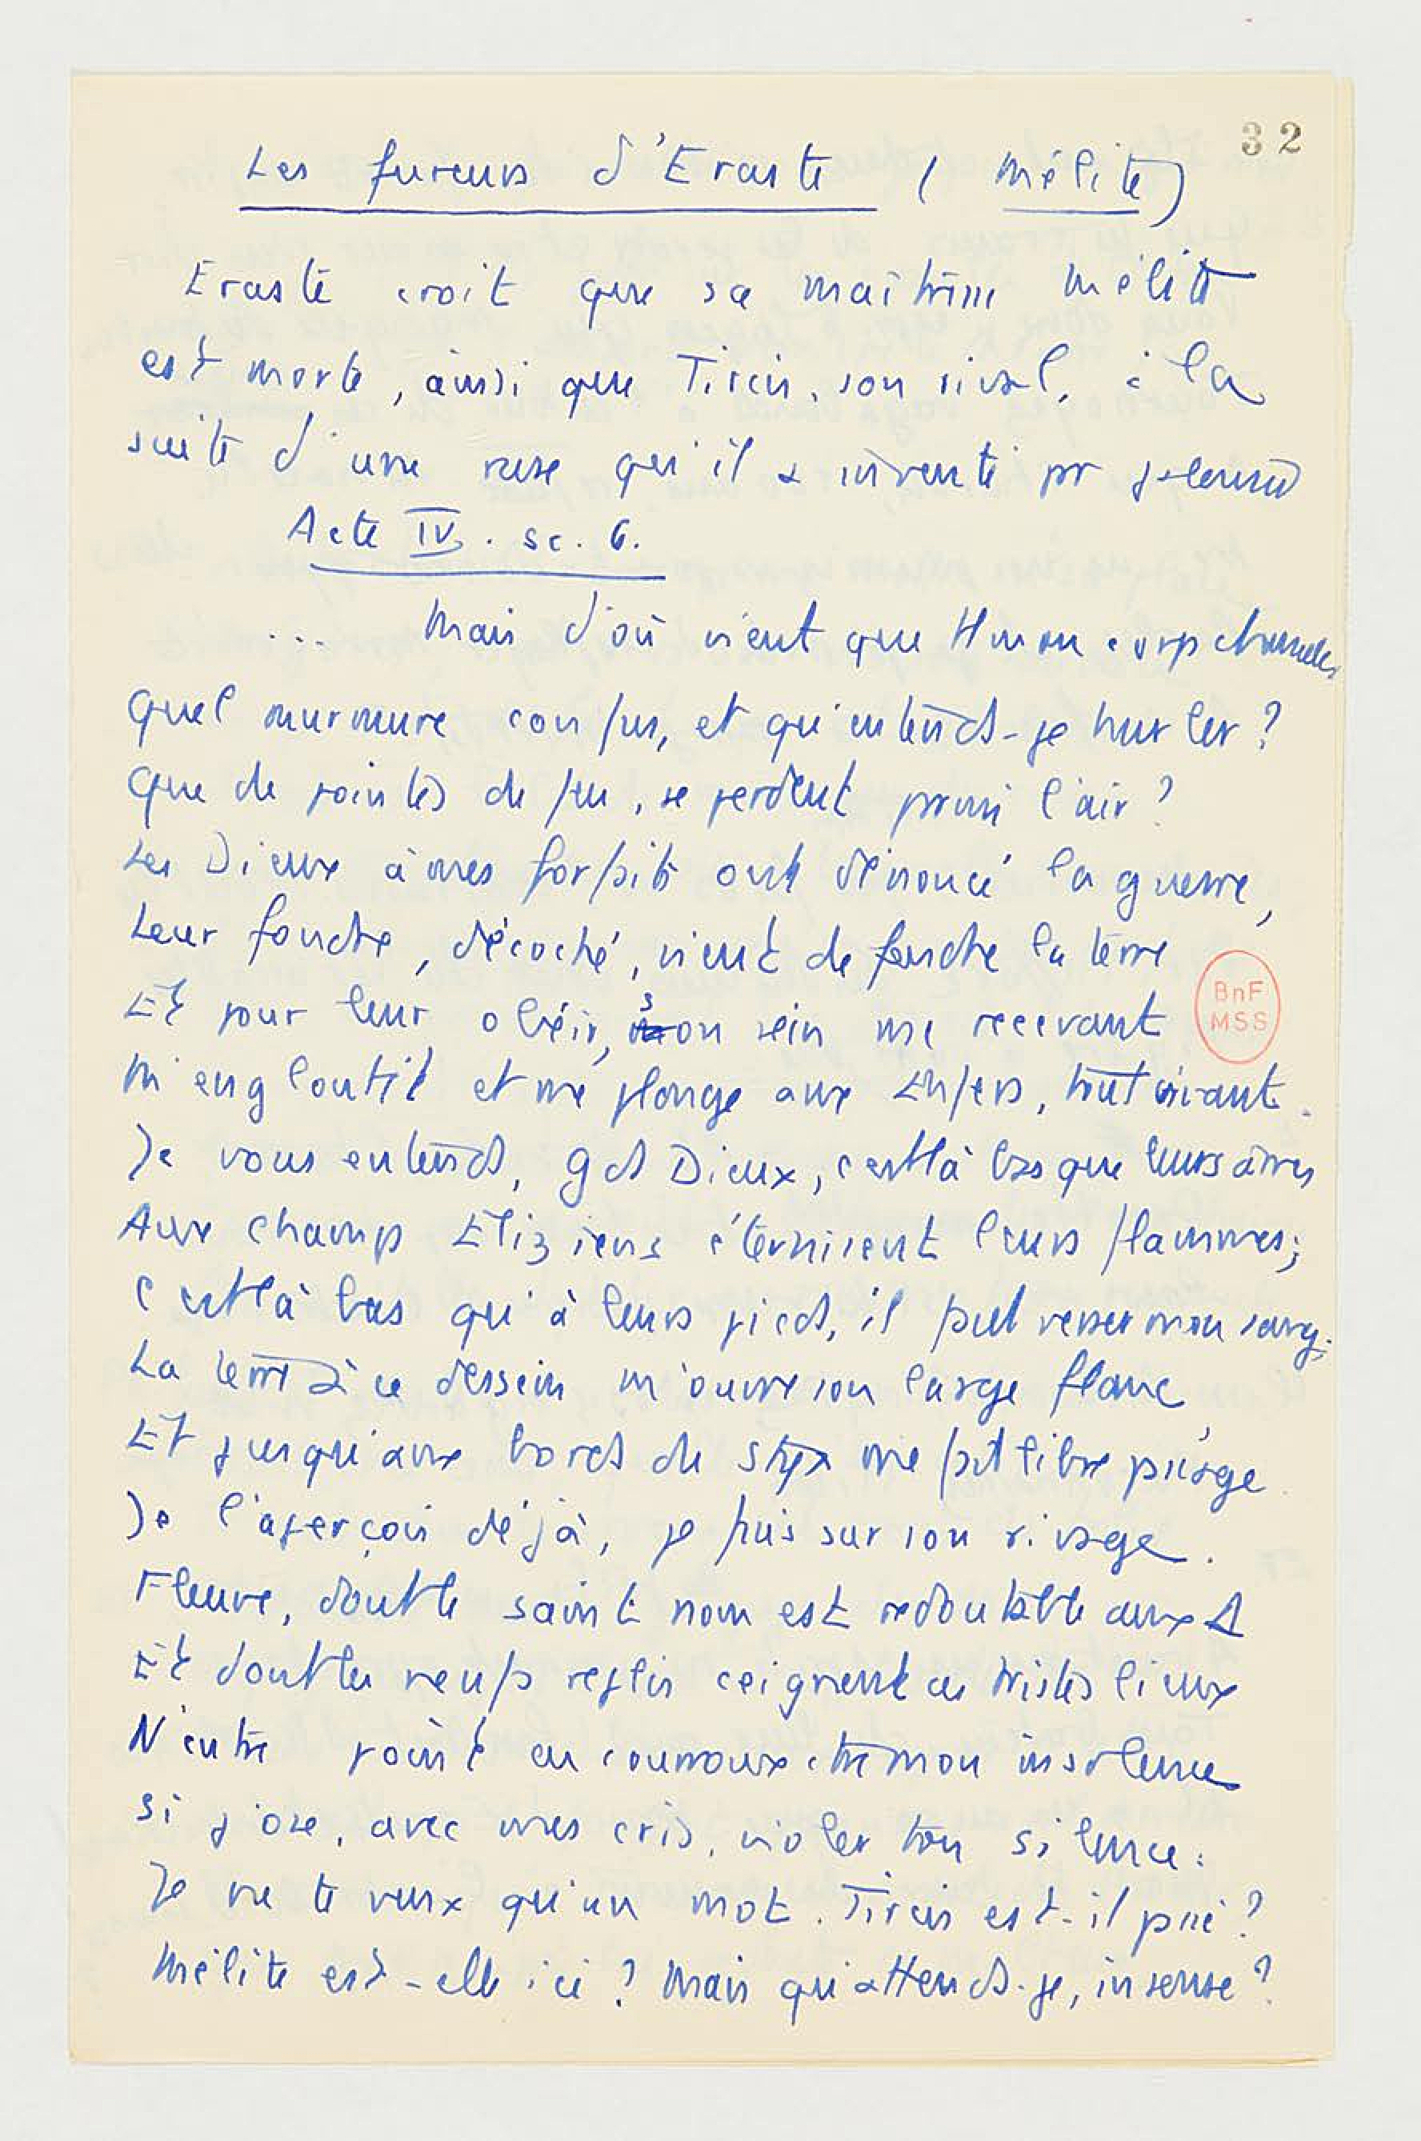 32
Les fureurs d'Eraste ( Mélite )
Eraste croit que sa maîtresse Mélite
est morte, ainsi que Tircis, son rival, à la
suite d'une ruse qu'il a inventé pr jalousie
Acte IV. sc. 6.
... Mais d'où vient que tt mon corps chancelle
Quel murmure confus, et qu'entends-je hurler ?
Que de pointes de feu, se perdent parmi l'air ?
Les Dieux à mes forfaits ont dénoncé la guerre,
Leur foudre, décoché, vient de fendre la terre
Et pour leur obéir, son sein me recevant
M'engloutit et me plonge aux Enfers, tout vivant.
Je vous entends, gds Dieux, c'est là bas que leurs âmes
Aux Champs Eliziens éternisent leurs flammes;
C'est là bas qu'à leurs pieds, il faut verser mon sang;
La terre à ce dessein m'ouvre son large flanc
Et jusqu'aux bords du Styx me fait libre passage
Je l'aperçois déjà, je suis sur son rivage.
Fleuve, dont le saint nom est redoutable aux D
Et dont les neufs replis ceignent ces tristes lieux
N'entre point en courroux ctre mon insolence
Si j'ose, avec mes cris, violer ton silence:
Je ne te veux qu'un mot. Tircis est-il passé ?
Mélite est-elle ici ? Mais qu'attends-je, insensé ?
BnF
MSS